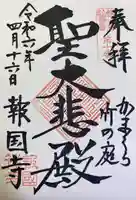 奉拝
かまくら
竹の庭
聖大悲殿
令和六年
四月十六日
報国寺